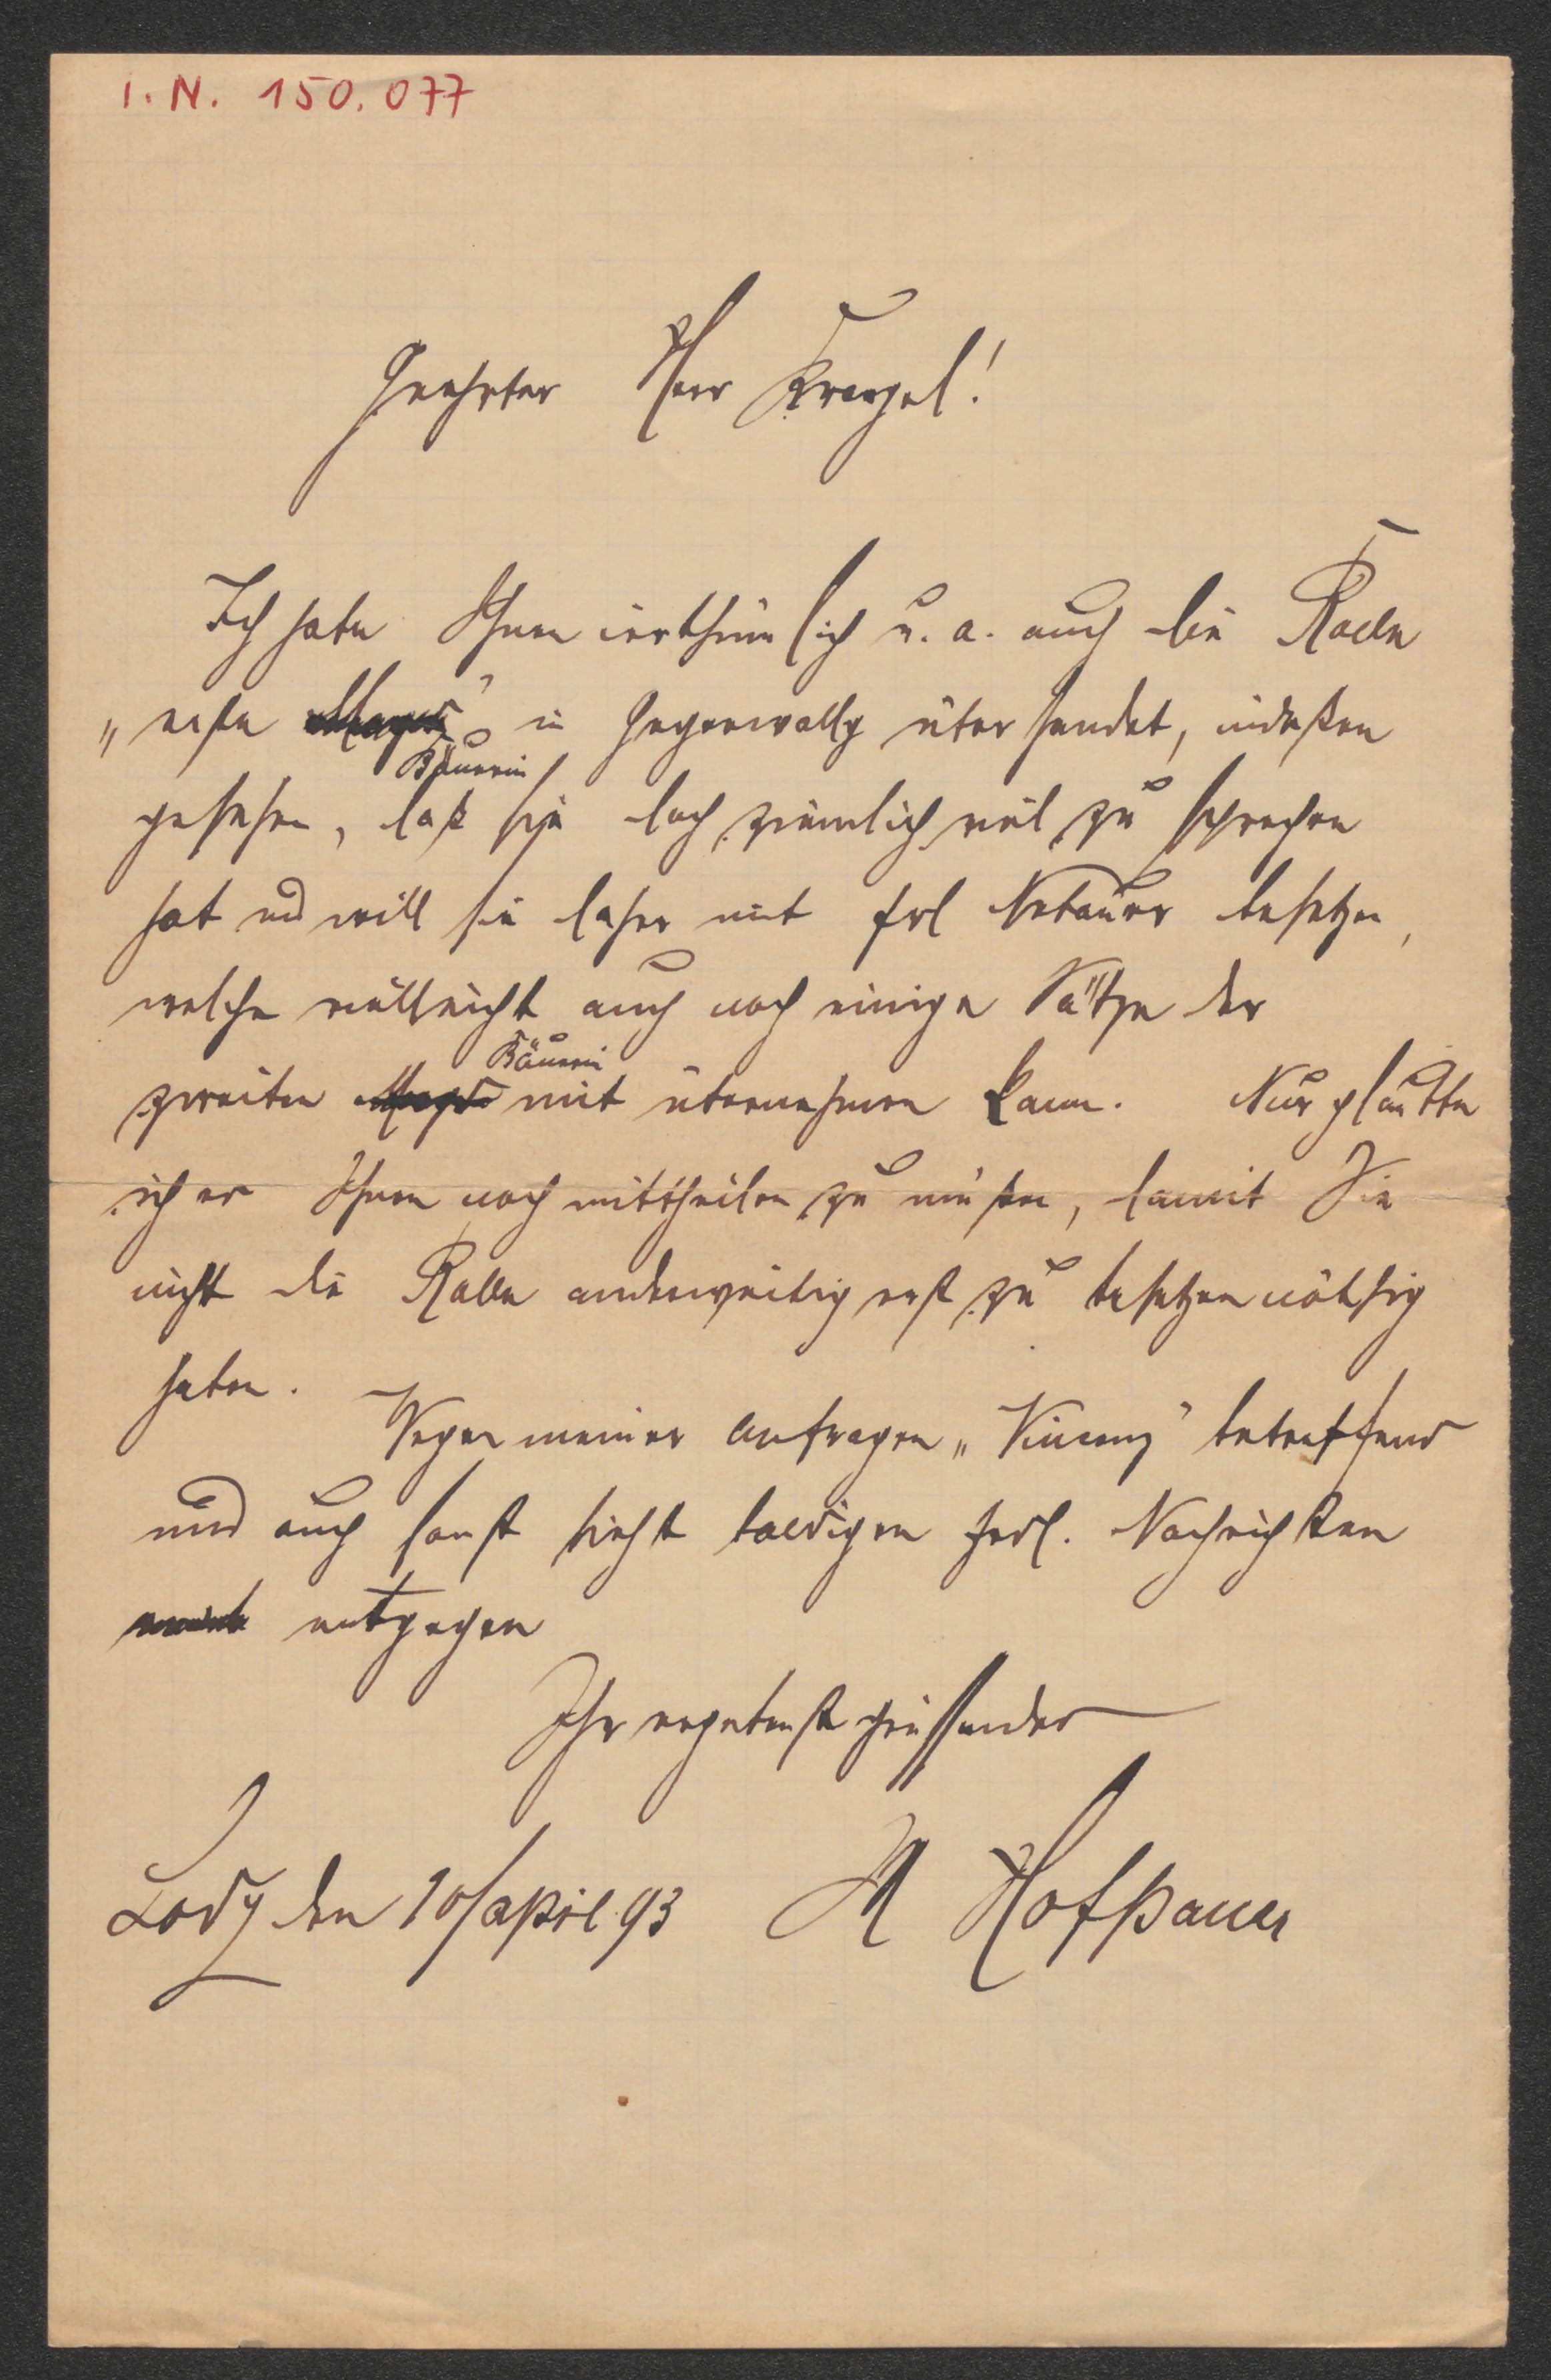 I. N. 150.077
Geehrter Herr Krengel!
Ich habe Ihnen irrthümlich u. a. auch die Rolle
"erste Magd" in Geyerwally übersendet, indeßen
Bäuerin
gesehen, daß sie doch ziemlich viel zu sprechen
hat und will sie daher mit Frl besetzen,
welche vielleicht auch noch einige Sätze der
Bäuerin
zweiten Magd mit übernehmen kann. Nur glaubte
ich es Ihnen noch mittheilen zu müßen, damit Sie
nicht die Rolle anderweitig erst zu besetzen nöthig
haben.
Wegen meiner Anfragen betreffend
und auch sonst sieht baldigen frdl. Nachrichten
entgegen
Ihr ergebenst grüssender
Lodz den 10/April 93 M Hofpauer